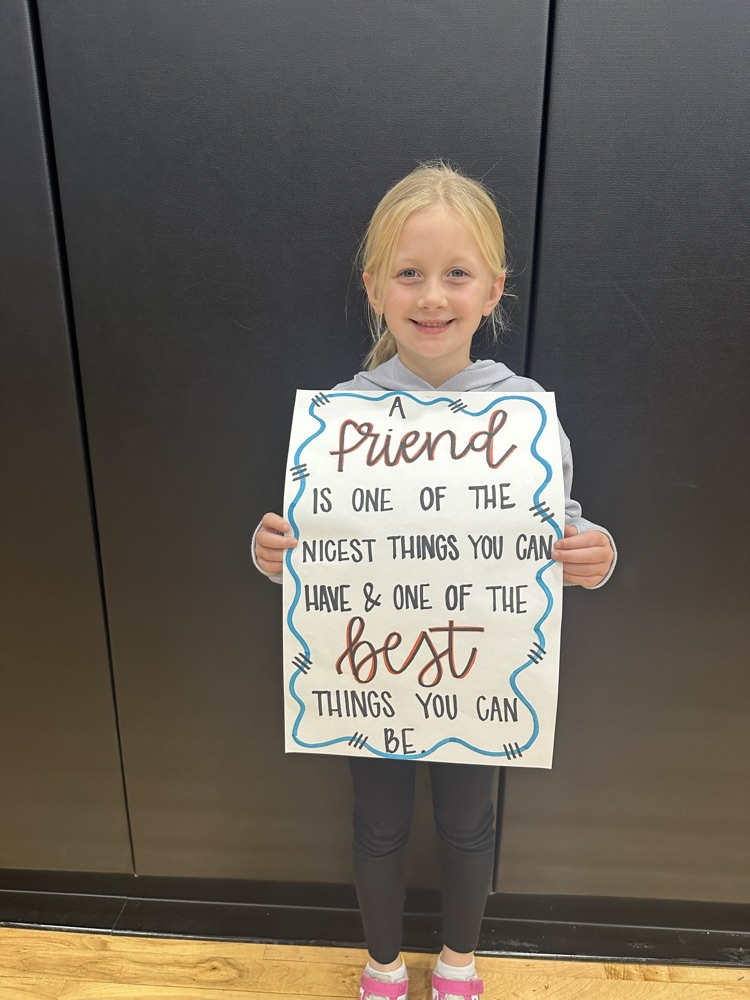 A
friend
IS ONE OF THE
NICEST THINGS YOU CAN
HAVE & ONE OF THE
best
THINGS YOU CAN
BE.